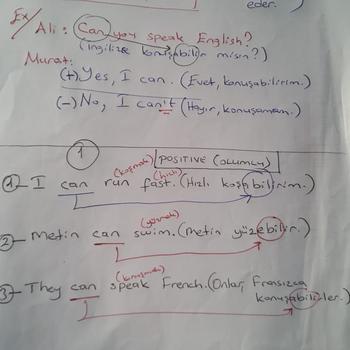 eder.
Ex/
Ali: Can you speak English?
(İngilizce konuşabilir misin?)
Murat:
(+) Yes, I can. (Evet, konuşabilirim.)
(-) No, I can't (Hayır, konuşamam.)
1 POSITIVE (OLUMLU)
(koşmak) (hızlı)
1- I can run fast. (Hızlı koşabilirim.)
(yüzmek)
2- Metin can swim. (Metin yüzebilir.)
(konuşmak)
3- They can speak French. (Onlar, Fransızca
konuşabilirler.)